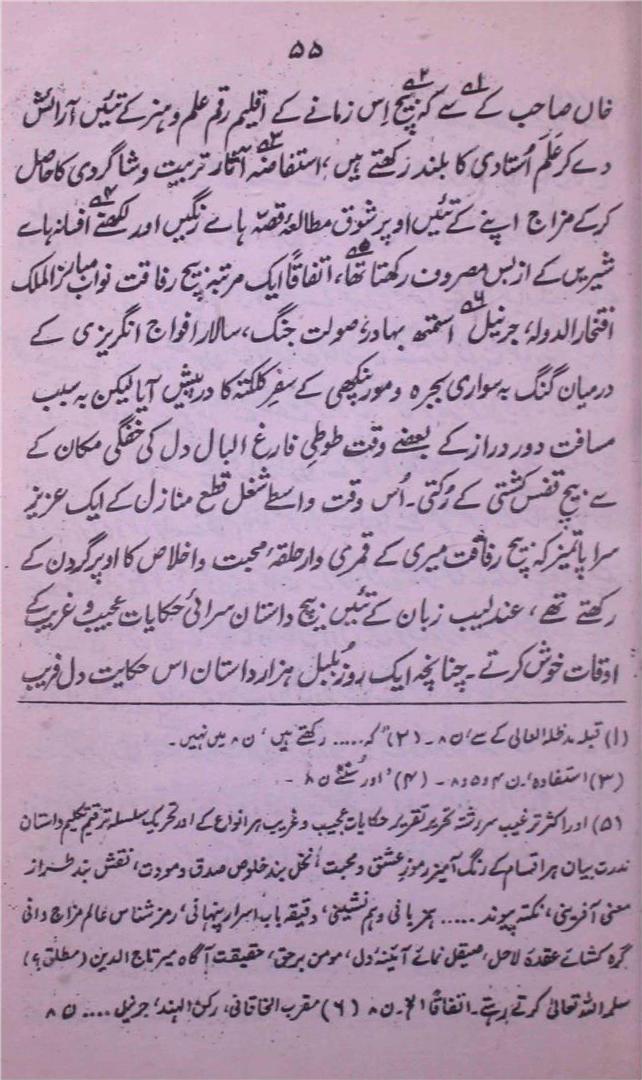 ۵۵
خاں صاحب کے ؎۱ سے کہ ؎۲ بیچ اِس زمانے کے اقلیم رقم علم و ہنر کے تئیں آرائش
دے کر عَلَم اُستادی کا بلند رکھتے ہیں، استفاضہ ؎۳ آثار تربیت و شاگردی کا حاصل
کرکے مزاج اپنے کے تئیں اوپر شوق مطالعۂ قصّہ ہاے رنگیں اور لکھنے ؎۴ افسانہ ہاے
شیریں کے از بس مصروف رکھتا تھا، ؎۵ اتفاقاً ایک مرتبہ بیچ رفاقت نواب مبارز الملک
افتخار الدولہ، جرنیل ؎۶ اسمتھ بہادر، صولت جنگ، سالار افواج انگریزی کے
درمیان گنگ بہ سواری بجرہ و مور پنکھی کے سفر کلکتہ کا درپیش آیا لیکن بہ سبب
مسافت دور دراز کے بعضے وقت طوطیِ فارغ البال دل کی خفگی مکان کے
سے بیچ قفس کشتی کے رُکتی۔ اُس وقت واسطے شغل قطع منازل کے ایک عزیز
سراپا تمیز کہ بیچ رفاقت میری کے قمری وار حلقہ محبت و اخلاص کا اوپر گردن کے
رکھتے تھے، عندلیب زبان کے تئیں بیچ داستان سرائی حکایات عجیب و غریب کے
اوقات خوش کرتے۔ چنانچہ ایک روز بلبل ہزار داستان اس حکایت دل فریب
(۱) قبلہ مدظلہ العالی کے سے، ن ۸۔ (۲) ''کہ ..... رکھتے ہیں' ن ۸ میں نہیں۔
(۳) استفادہ'۔ ن ۴ و ۵ و ۸۔ (۴) 'اور سُننے ن ۸۔
(۵) اور اکثر ترغیب سررشتہ تحریر تقریر حکایات عجیب و غریب ہر انواع کے اور تحریک سلسلہ ترقیم داستان
ندرت بیان ہر اقسام کے رنگ آمیز رموز عشق و محبت نخل بند خلوص صدق و مودت، نقش بند طراز
معنی آفرینی، نکتہ پیوند ..... ہمزبانی و ہم نشینی، دقیقہ یاب اسرار پنہانی، رمز شناس عالم مزاج دانی
گرہ کشائے عقدۂ لاحل، صیقل نمائے آئینۂ دل، مومن برحق، حقیقت آگاہ میر تاج الدین (مطلق؟)
سلمہ اللہ تعالیٰ کرتے رہتے۔ اتفاقاً الخ۔ ن ۸ (۶) مقرب الخاقانی، رکن الہند، جرنیل .... ن ۸